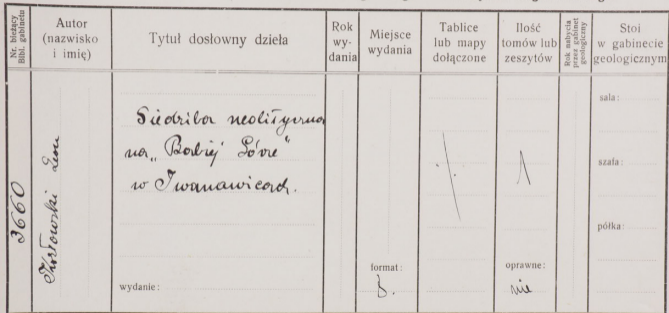 Nr. bieżący
Bibl. gabinetu
Autor
(nazwisko
i imię)
Tytuł dosłowny dzieła
Rok
wy-
dania
Miejsce
wydania
Tablice
lub mapy
dołączone
Ilość
tomów lub
zeszytów
Rok nabycia
przez gabinet
geologiczny
Stoi
w gabinecie
geologicznym
3660
Kozłowski Leon
Siedziba neolityczna
na „Babiej Górze"
w Iwanowicach.
wydanie:
format:
8.
1
oprawne:
nie
sala:
szafa:
półka: